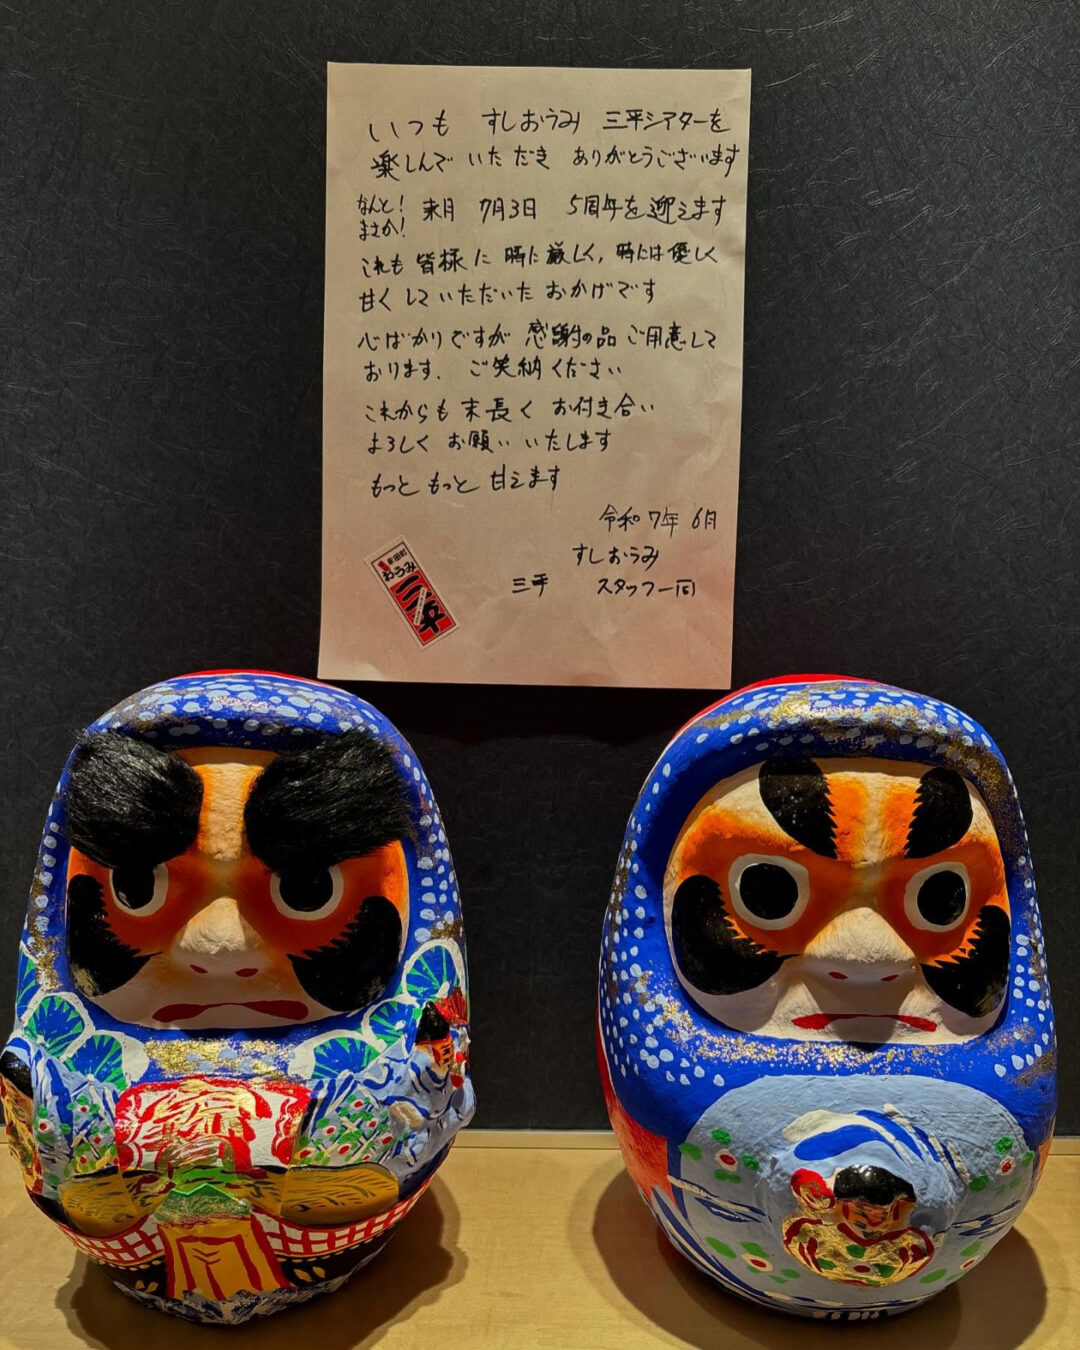 いつも すしおうみ 三平シアターを
楽しんで いただき ありがとうございます
なんと!
まさか!
来月 7月3日 5周年を迎えます
これも 皆様に 時に厳しく、時には優しく
甘くしていただいた おかげです
心ばかりですが 感謝の品 ご用意して
おります。 ご笑納ください
これからも 末長く お付き合い
よろしく お願い いたします
もっと もっと 甘えます
令和7年 6月
すしおうみ
三平 スタッフ一同
おうみ
三平